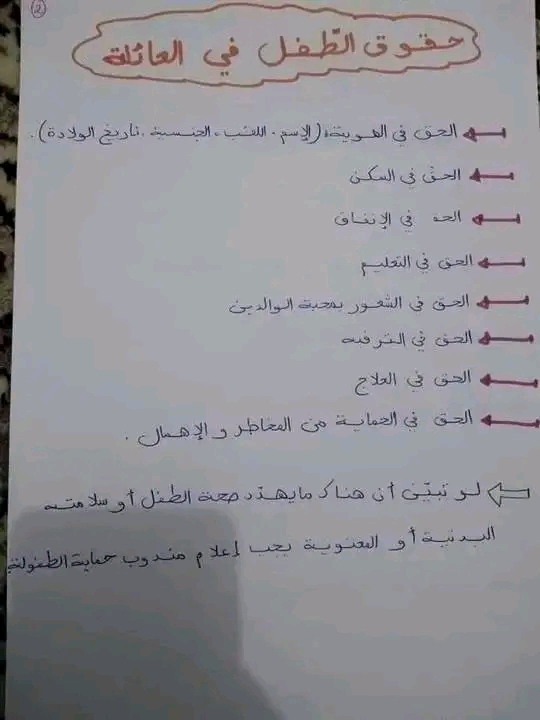 2
حقوق الطّفل في العائلة
الحق في الهوية: (الإسم، اللقب، الجنسية، تاريخ الولادة).
الحقّ في السكن
الحق في الإنفاق
الحق في التعليم
الحق في الشعور بمحبة الوالدين
الحق في الترفيه
الحق في العلاج
الحق في الحماية من المخاطر و الإهمال.
لو تبيّن أن هناك ما يهدّد صحة الطفل أو سلامته
البدنية أو المعنوية يجب إعلام مندوب حماية الطفولة